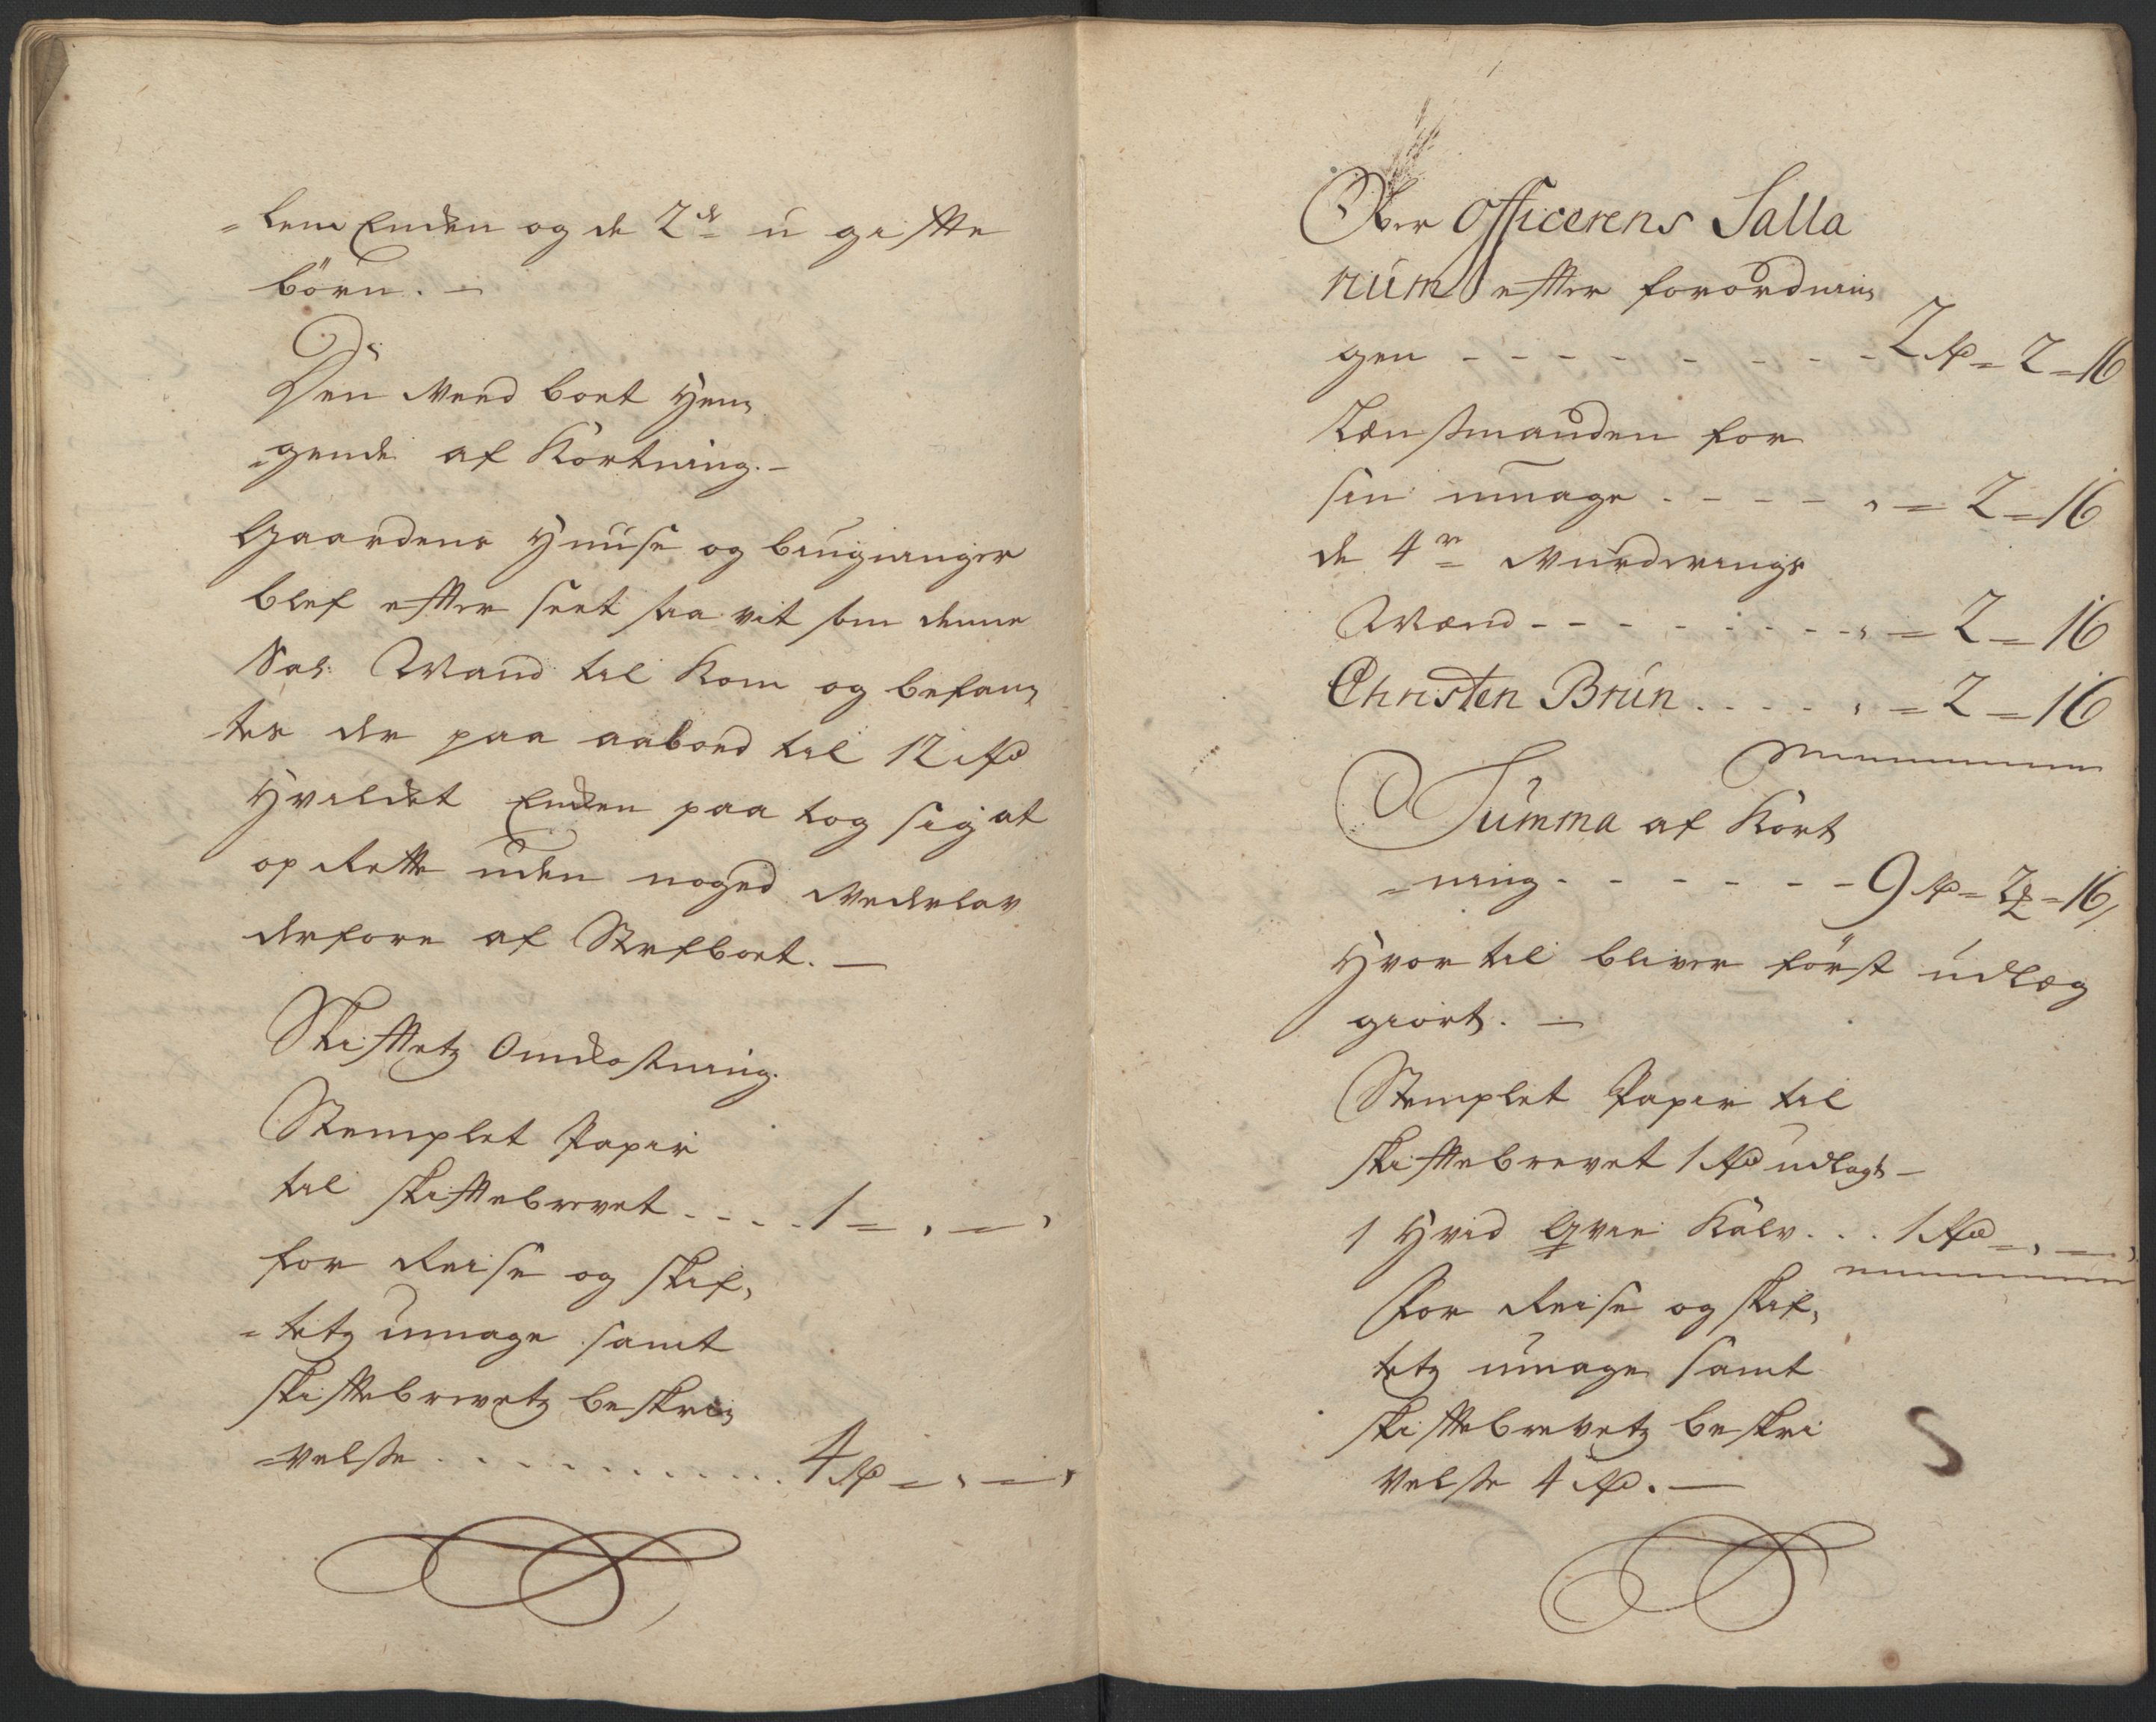 = lem Enken og de 2de u gifte
börn. –
Den Med boet Hen,
=gende af Kortning. –
Gaardens Huuse og bÿgninger
blef efter seet saa vit som denne
Sal: Mand til kom og befan,
tes der paa aabood til 12 Rd
Hvilcket Encken paa tog sig at
op Rette uden noged Vederlav
derfore af Sterfboet. –
Skifftetz Omkostning.
Stemplet Papir
til skiftebrevet . . . . 1 = , = ,
for Reise og skif,
= tetz umage samt
skiftebrevetz beskri,
=velse . . . . . . . . . . . . 4 Rd = , = ,
Ober Officerens Salla
rium efter forordnin,
gen - - - - - - - - - 2 Rd = 2 = 16
Lensmanden for
sin umage - - - - - , = 2 = 16
de 4re Vurderings
Mænd - - - - - - - - - , = 2 = 16
Christen Brun . . . . . , = 2 = 16
Summa af Kort
= ning - - - - - - - 9 Rd = 2 = 16,
Hvor til bliver först udlæg
giort. –
Stemplet Papir til
skiftebrevet 1 Rd udlagt –
1 Hvid Qvie Kalv . . . 1 Rd = , = ,
For Reise og skif,
tetz umage samt
skiftebrevetz beskri
velse 4 Rd. –